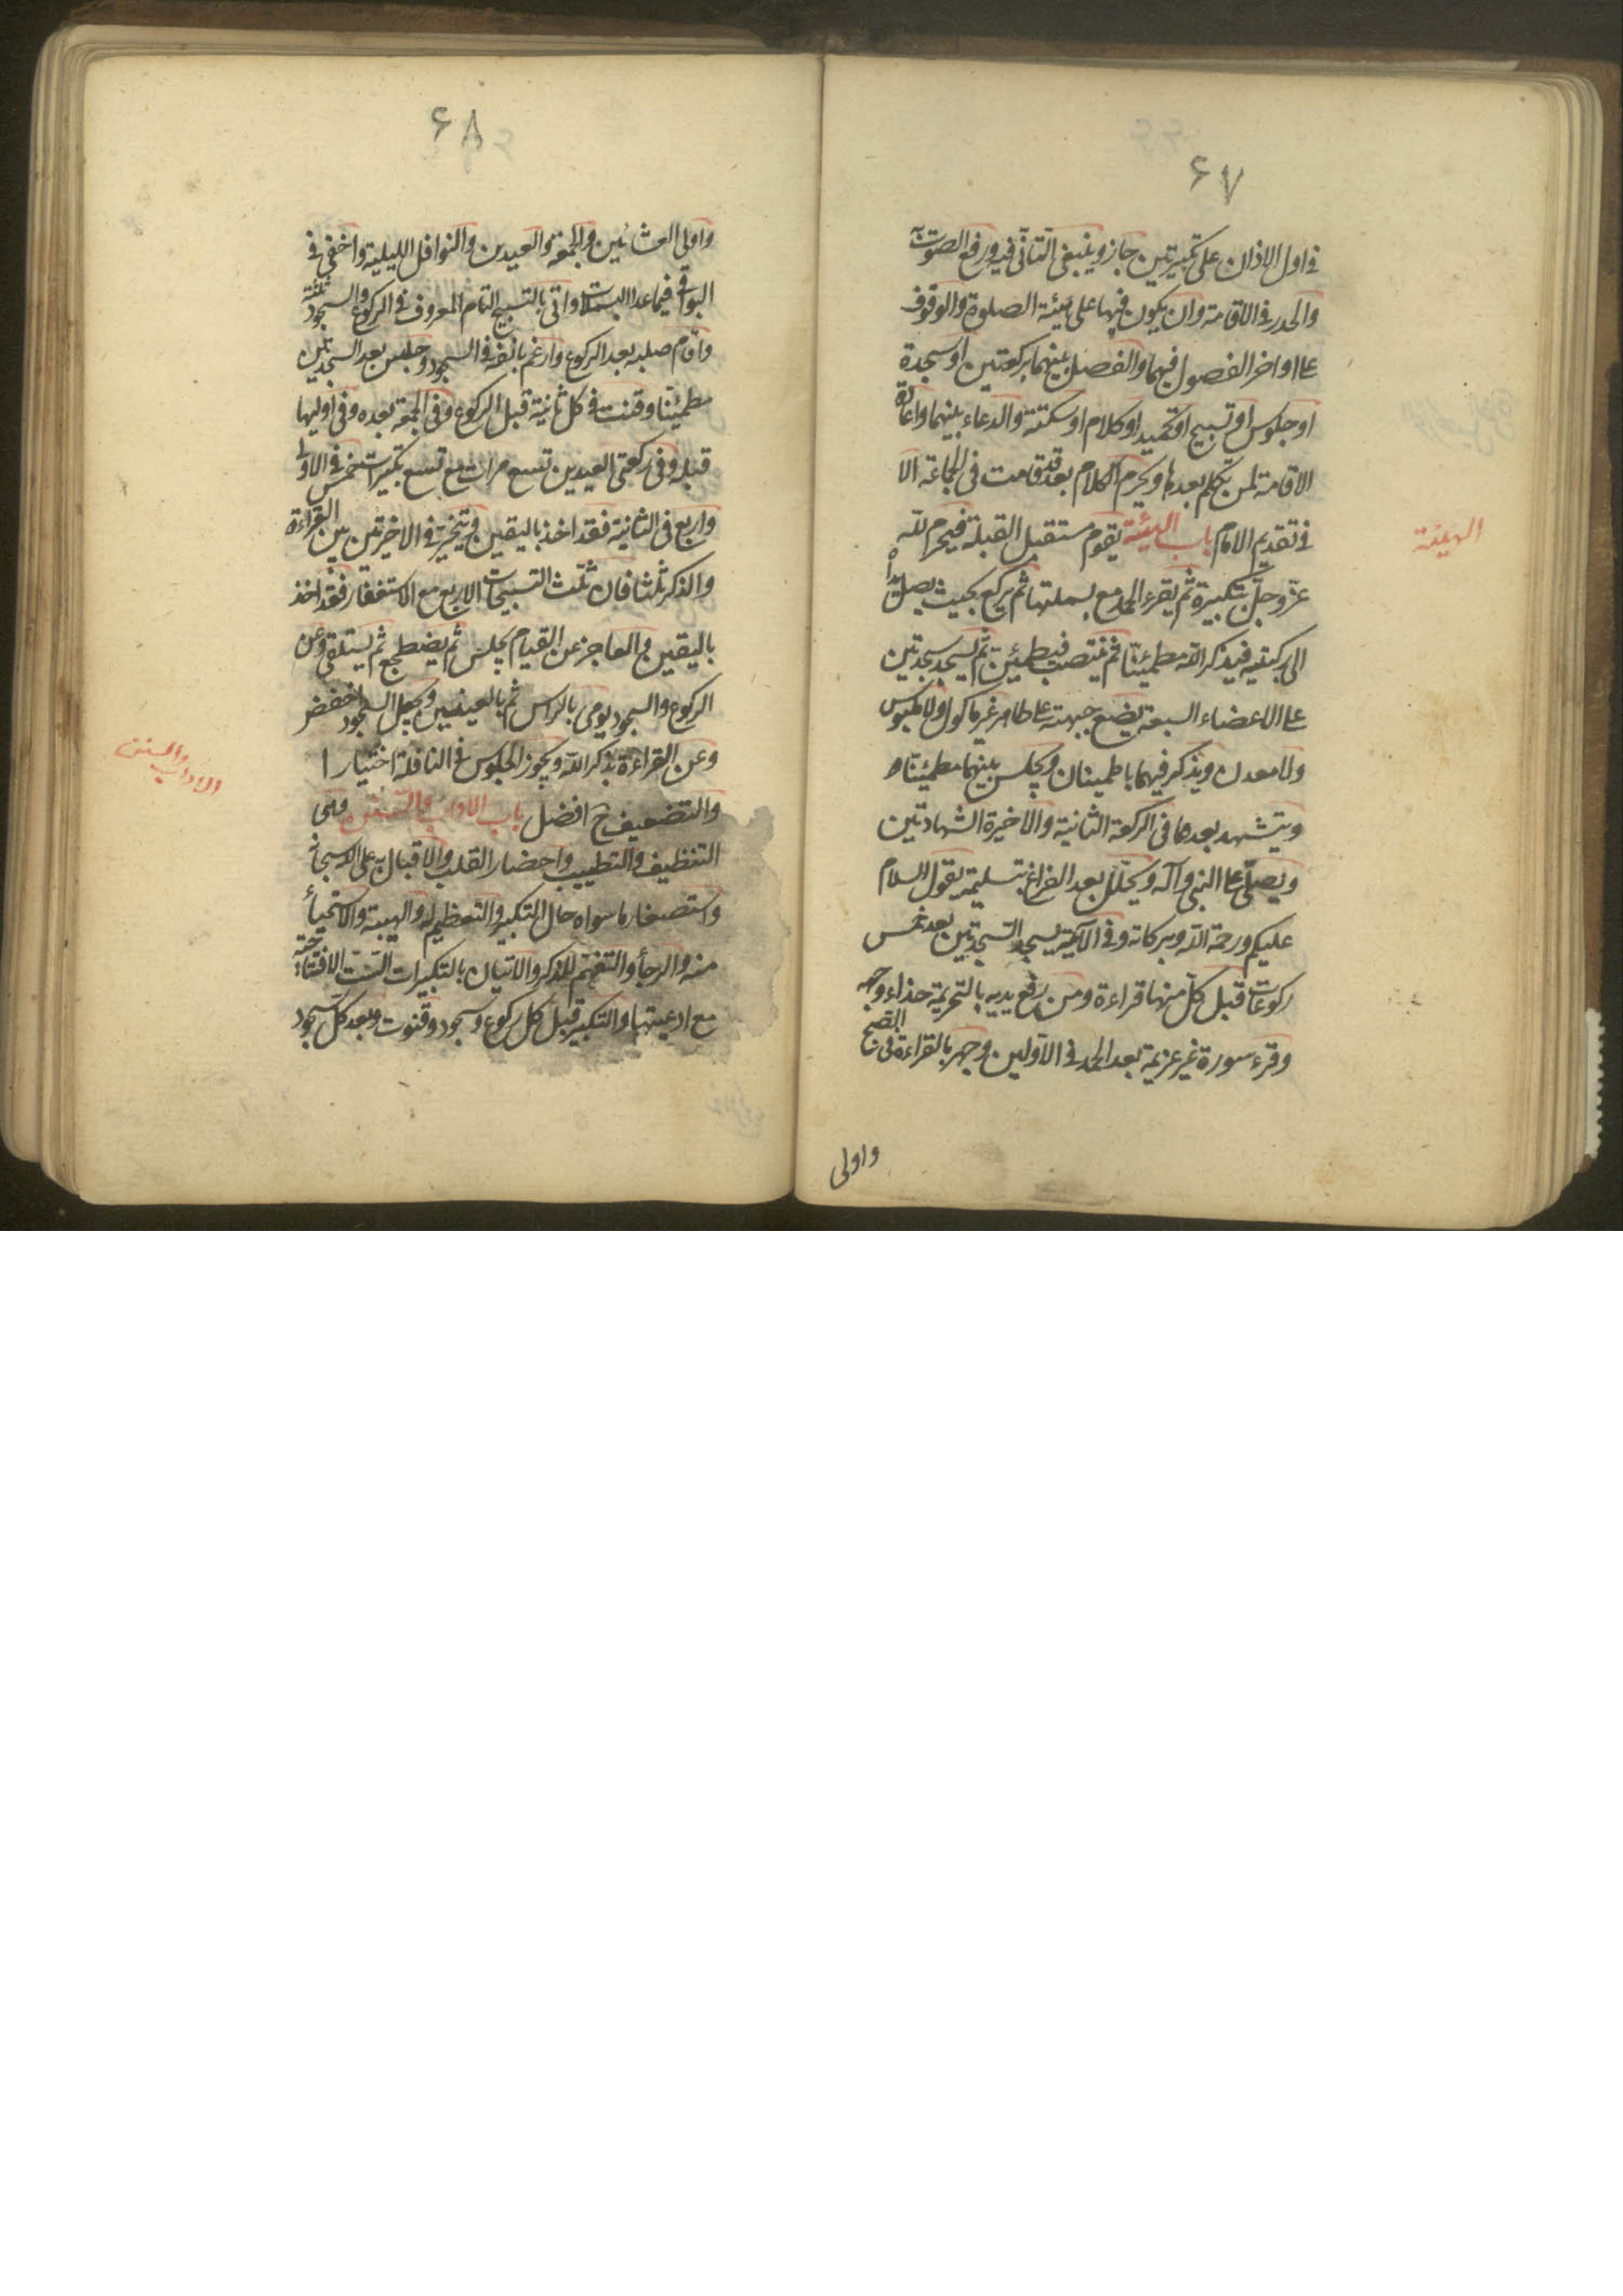 ۶۷
في اول الاذان على تكبيرتين جاز وينبغي التأني فيه ورفع الصوت به
والحدر في الاقامة وان يكون فيها على هيئة الصلوة والوقوف
على اواخر الفصول فيهما والفصل بينهما بركعتين او سجدة
او جلوس او تسبيح او تحميد او كلام او سكتة والدعاء بينهما واعادة
الاقامة لمن تكلم بعدها ويحرم الكلام بعد قد قامت في الجماعة الا
في تقديم الامام باب الهيئة يقوم مستقبل القبلة فيحرم لله
الهيئة
عز وجل بتكبيرة ثم يقرء الحمد مع بسملتها ثم يركع بحيث يصل يداه
الى ركبتيه فيذكر الله مطمئنا ثم ينتصب فيطمئن ثم يسجد سجدتين
على الاعضاء السبعة يضع جبهته على طاهر غير ماكول ولا ملبوس
ولا معدن ويذكر فيهما باطمينان ويجلس بينهما مطمئنا
ويتشهد بعدهما في الركعة الثانية والاخيرة الشهادتين
ويصلي على النبي وآله ويحلل بعد الفراغ بتسليمة يقول السلام
عليكم ورحمة الله وبركاته وفي الآية يسجد السجدتين بعد خمس
ركوعات قبل كل منها قراءة ومن رفع يديه بالتحريمة حذاء وجهه
وقرء سورة غير عزيمة بعد الحمد في الاولين وجهر بالقراءة في الصبح
واولى
۶۸
واولى العشائين والجمعة والعيدين والنوافل الليلية واخفى في
البواقي فيما عدا البسملة واتى بالتسبيح التام المعروف في الركوع والسجود ثلثة
واقام صلبه بعد الركوع وارغم بانفه في السجود وجلس بعد السجدتين
مطمئنا وقنت في كل ثانية قبل الركوع وفي الجمعة بعده وفي اوليها
قبله وفي ركعتي العيدين تسع مرات مع تسع تكبيرات خمس في الاولى
واربع في الثانية فقد اخذ باليقين ويتخير في الاخيرتين بين القراءة
والذكر ثلثا فان ثلث التسبيحات الاربع مع الاستغفار فقد اخذ
باليقين والعاجز عن القيام يجلس ثم يضطجع ثم يستلقي وعن
الركوع والسجود يومي بالراس ثم بالعينين ويجعل السجود اخفض
وعن القراءة بذكر الله ويجوز الجلوس في النافلة اختيارا
والاداب والسنن
والتضعيف ح افضل باب الاداب والسنن وهي
التنظيف والتطييب واحضار القلب والاقبال به على الله سبحانه
واستصغار ما سواه حال التكبير والتعظيم له والهيبة والاستحياء
منه والرجاء والتفهم للذكر والاتيان بالتكبيرات الست الافتتاحية
مع ادعيتها والتكبير قبل كل ركوع وسجود وقنوت وبعد كل سجود